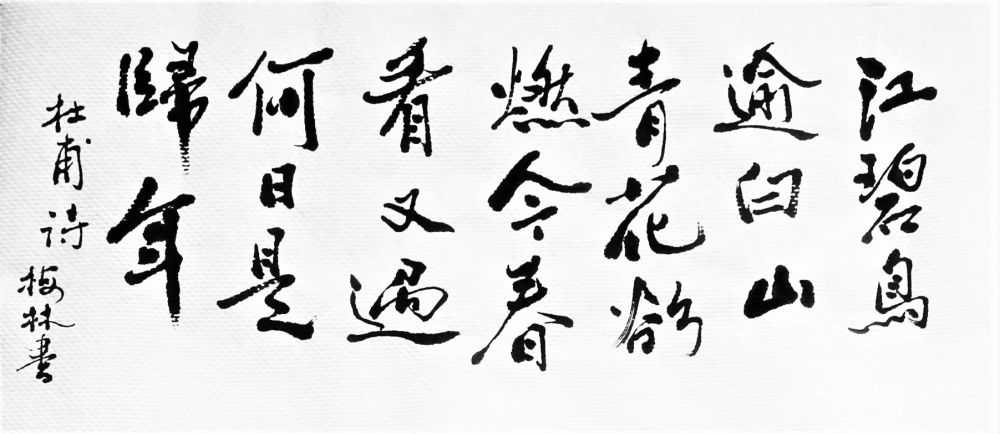 江碧鳥
逾白山
青花欲
燃今春
看又過
何日是
歸年
杜甫诗
梅林書